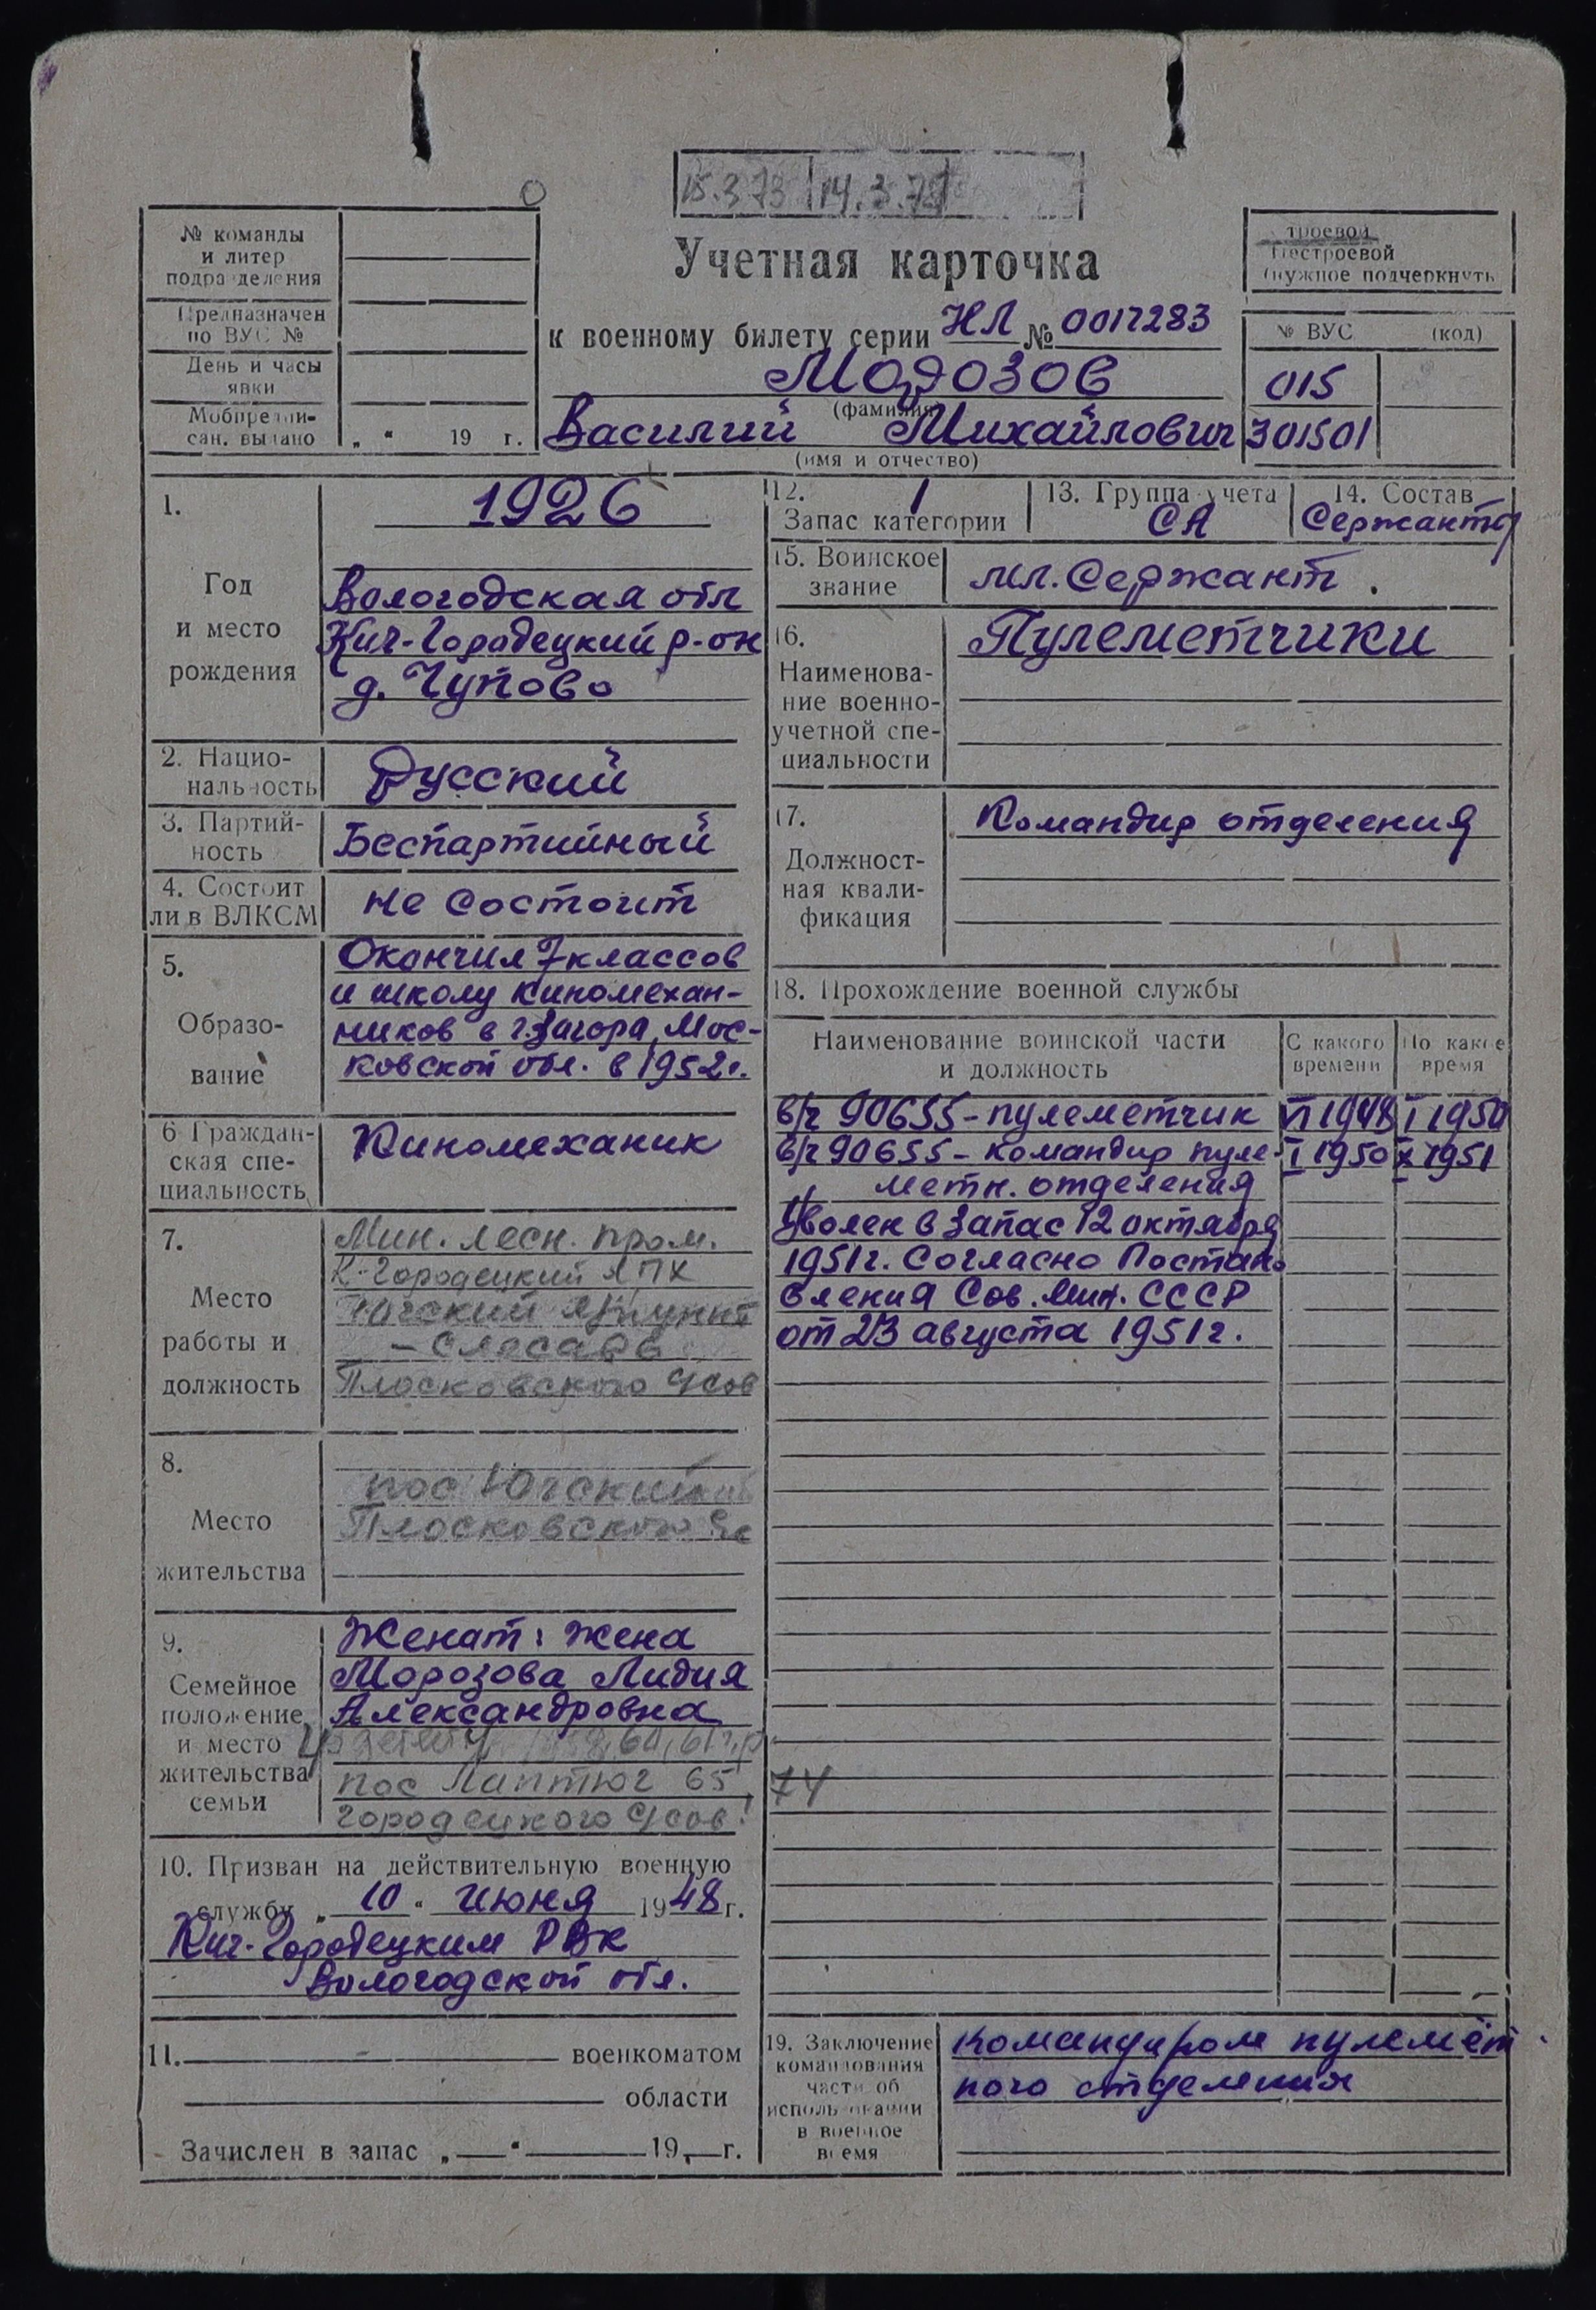 15.3.73 14.3.74
Учетная карточка
к военному билету серии НЛ № 0017283
Морозов
(фамилия)
Василий Михайлович
(имя и отчество)
№ команды
и литер
подразделения
Предназначен
по ВУС №
День и часы
явки
Мобпредпи-
сан. выдано „ “ 19 г.
троевой
Нестроевой
(нужное подчеркнуть
№ ВУС (код)
015
301501
1. 1926
Год
и место
рождения
Вологодская обл
Кич-Городецкий р-он
д. Чупово
2. Нацио-
нальность
Русский
3. Партий-
ность
Беспартийный
4. Состоит
ли в ВЛКСМ
не состоит
5.
Образо-
вание
Окончил 7 классов
и школу киномехан-
ников в г. Загора, Мос-
ковской обл. в 1952г.
6 Граждан-
ская спе-
циальность
Киномеханик
7.
Место
работы и
должность
Мин. лесн. пром.
К-Городецкий ЛПХ
Югский лпункт
- Слесарь
Плосковского Усов
8.
Место
жительства
пос Югский
Плосковского
9.
Семейное
положение
и место
жительства
семьи
Женат: жена
Морозова Лидия
Александровна
60, 61 г.р.
пос Лаптюг 65, 74
Городецкого Усов
10. Призван на действительную военную
службу „ 10 “ июня 1948 г.
Кич-Городецким РВК
Вологодской обл.
11. военкоматом
области
Зачислен в запас „ “ 19 г.
12. 1
Запас категории
13. Группа учета
СА
14. Состав
Сержанты
15. Воинское
звание
мл. Сержант.
16.
Наименова-
ние военно-
учетной спе-
циальности
Пулеметчики
17.
Должност-
ная квали-
фикация
Командир отделения
18. Прохождение военной службы
Наименование воинской части
и должность
С какого
времени
По какое
время
в/ч 90655 - пулеметчик VI 1948 I 1950
в/ч 90655 - командир пуле- I 1950 X 1951
метн. отделения
Уволен в запас 12 октября
1951г. Согласно Постано
вления Сов. Мин. СССР
от 23 августа 1951г.
19. Заключение
командования
части об
использовании
в военное
время
командиром пулемёт
ного отделения